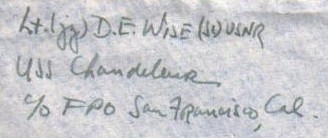 Lt.(jg) D.E. Wise (SC) USNR
USS Chandeleur
c/o FPO San Francisco, Cal.